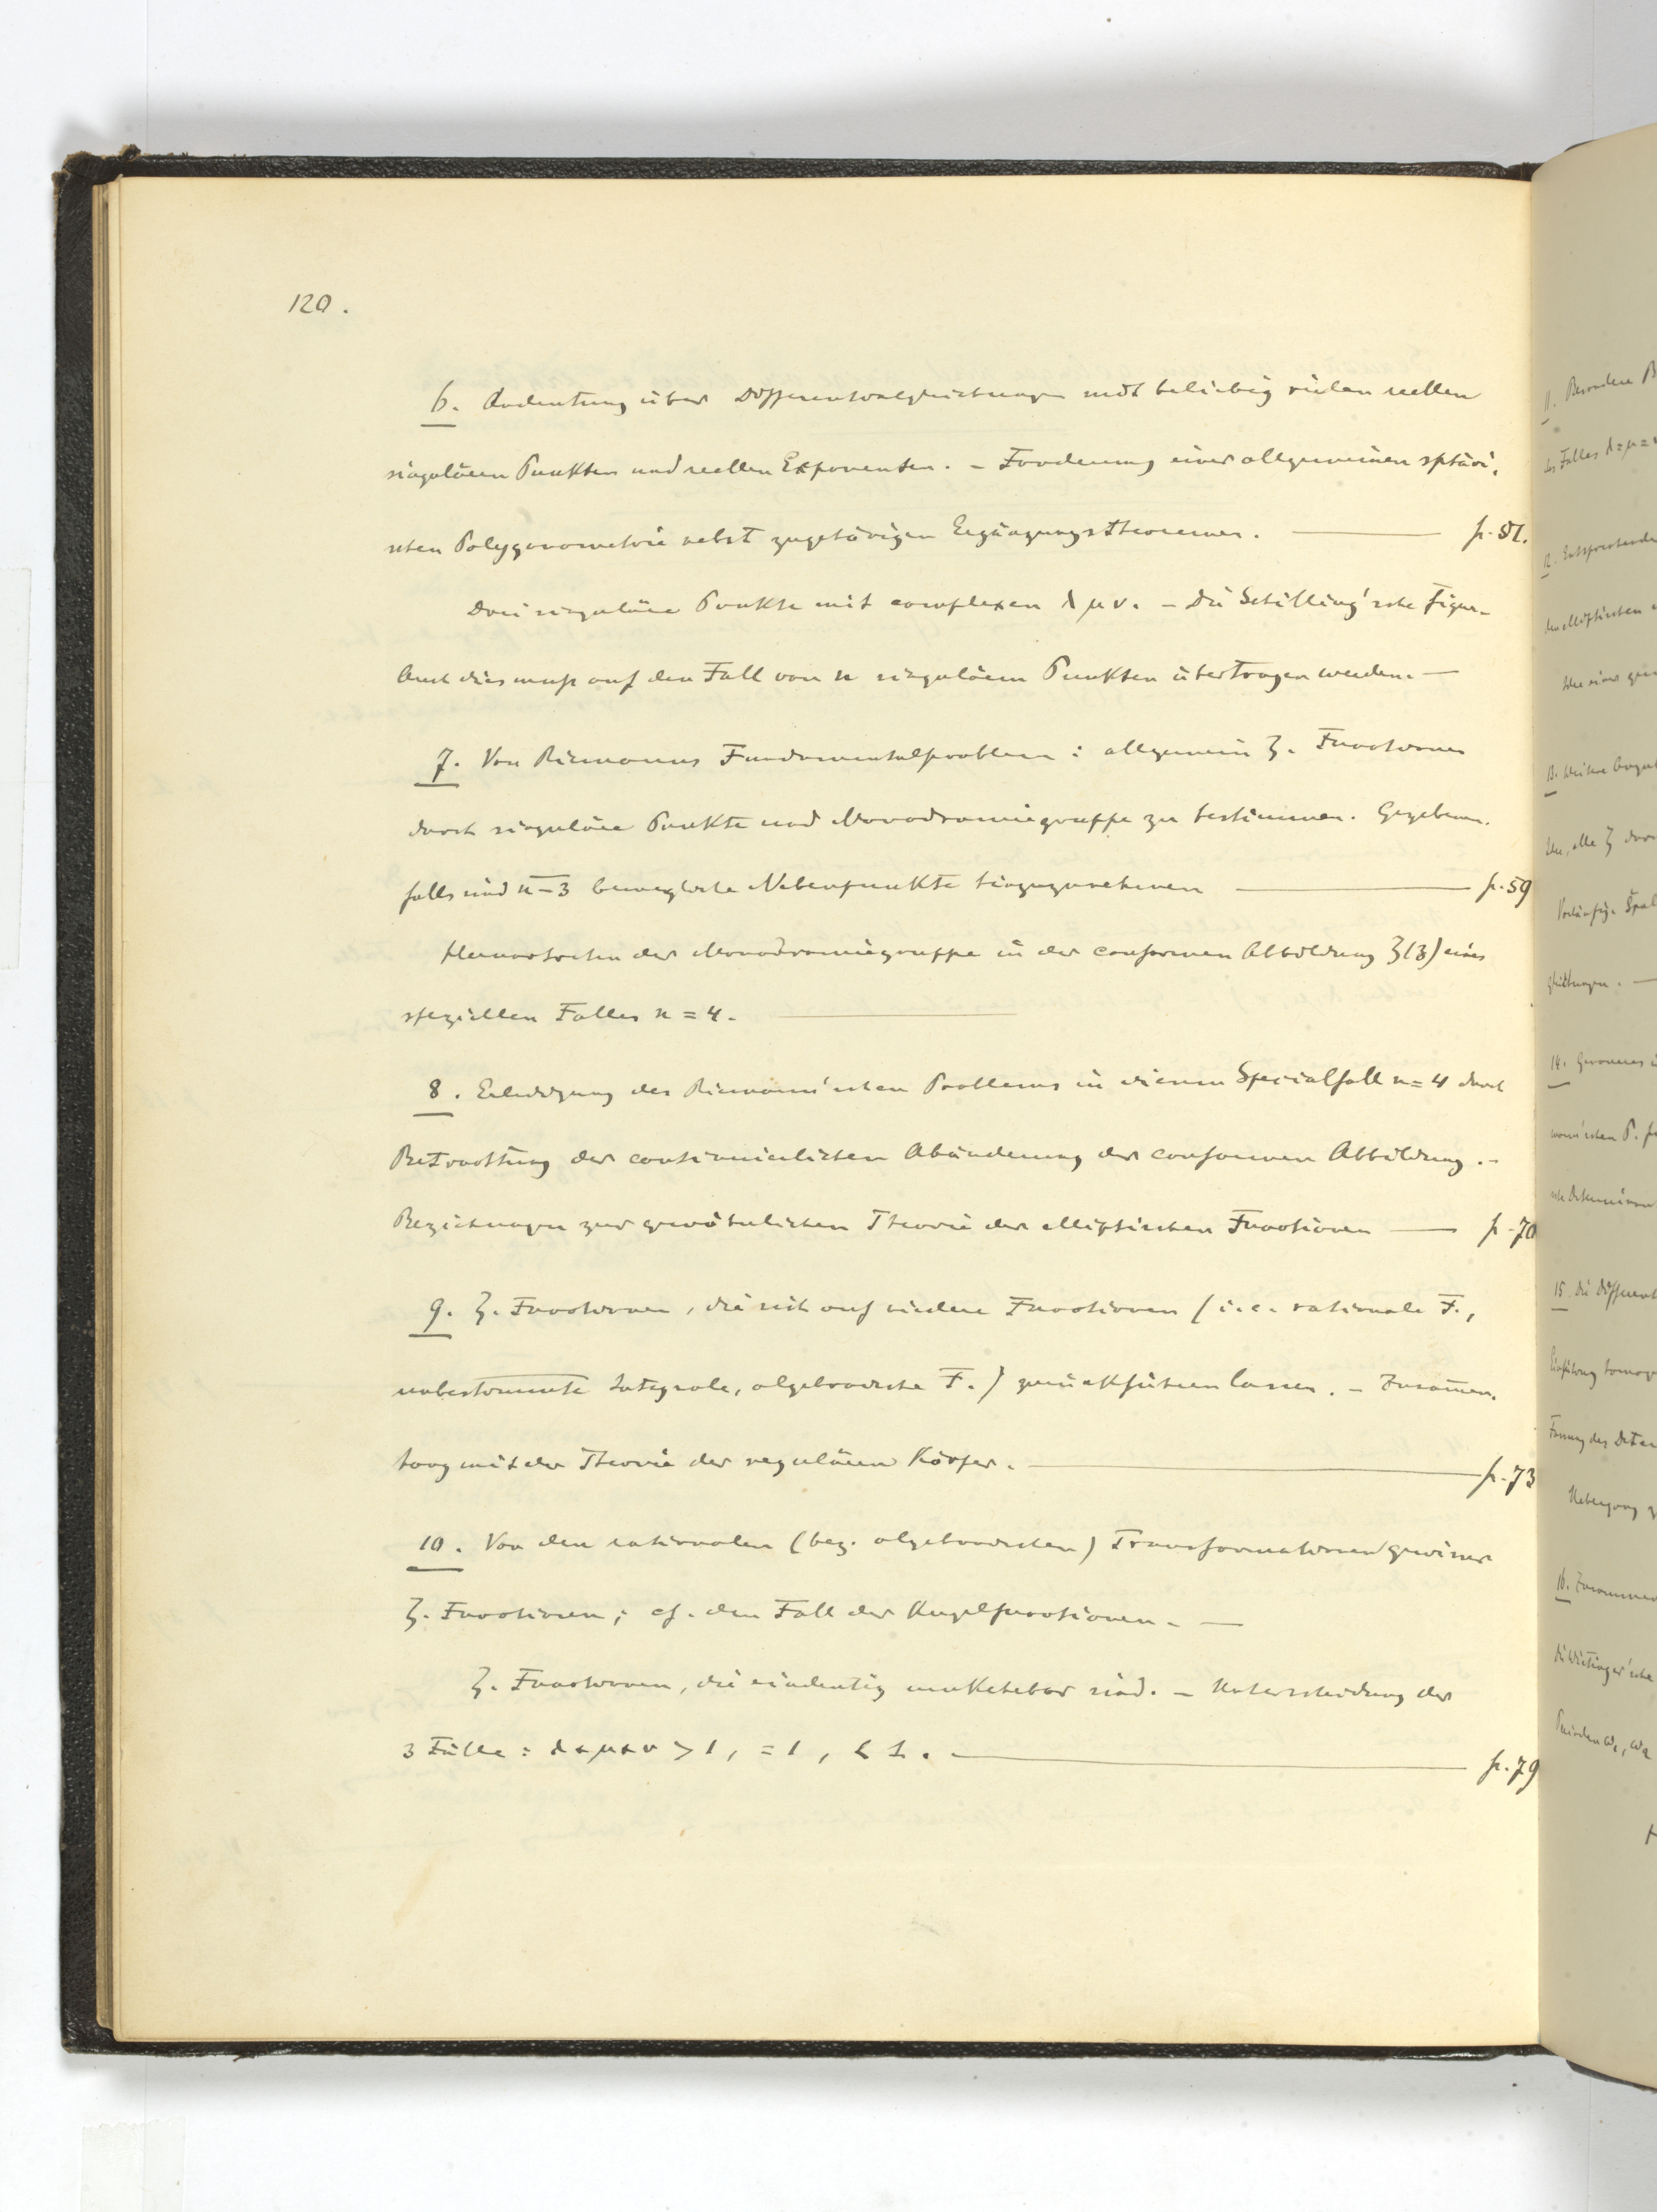 120.
6. Andeutung über Differentialgleichungen mit beliebig vielen reellen
singulären Punkten und reellen Exponenten. - Forderung einer allgemeinen sphäri-
schen Polygonometrie nebst zugehörigen Ergänzungstheoremen. — p. 51.
Drei singuläre Punkte mit complexen λ μ ν. - Die Schilling'sche Figur -
Auch dies muss auf den Fall von n singulären Punkten übertragen werden. —
7. Von Riemanns Fundamentalproblem: allgemein ζ. Functionen
durch singuläre Punkte und Monodromiegruppe zu bestimmen. Gegebenen-
falls sind n-3 bewegliche Nebenpunkte hinzuzunehmen — p. 59
Hervortreten der Monodromiegruppe in der conformen Abbildung ζ(z) eines
speziellen Falles n = 4. —
8. Erledigung des Riemann'schen Problems in diesem Specialfall n = 4 durch
Betrachtung der continuierlichen Abänderung der conformen Abbildung. -
Beziehungen zur gewöhnlichen Theorie der elliptischen Functionen — p. 70
9. ζ. Functionen, die sich auf niedere Functionen (i.e. rationale F.,
unbestimmte Integrale, algebraische F.) zurückführen lassen. - Zusam̅en-
hang mit der Theorie der regulären Körper. — p. 73
10. Von den rationalen (bez. algebraischen) Transformationen gewisser
ζ. Functionen; cf. den Fall der Kugelfunctionen. —
ζ. Functionen, die eindeutig umkehrbar sind. - Unterscheidung der
3 Fälle: λ+μ+ν > 1, = 1, < 1. — p. 79
11. Besondere
des Falles λ=μ=
12. Entsprechende
der elliptischen
13. Weitere
alle ζ
Vorläufige
gleichungen. —
14.
15. Die Different
16. Zusammen
Perioden ω₁, ω₂